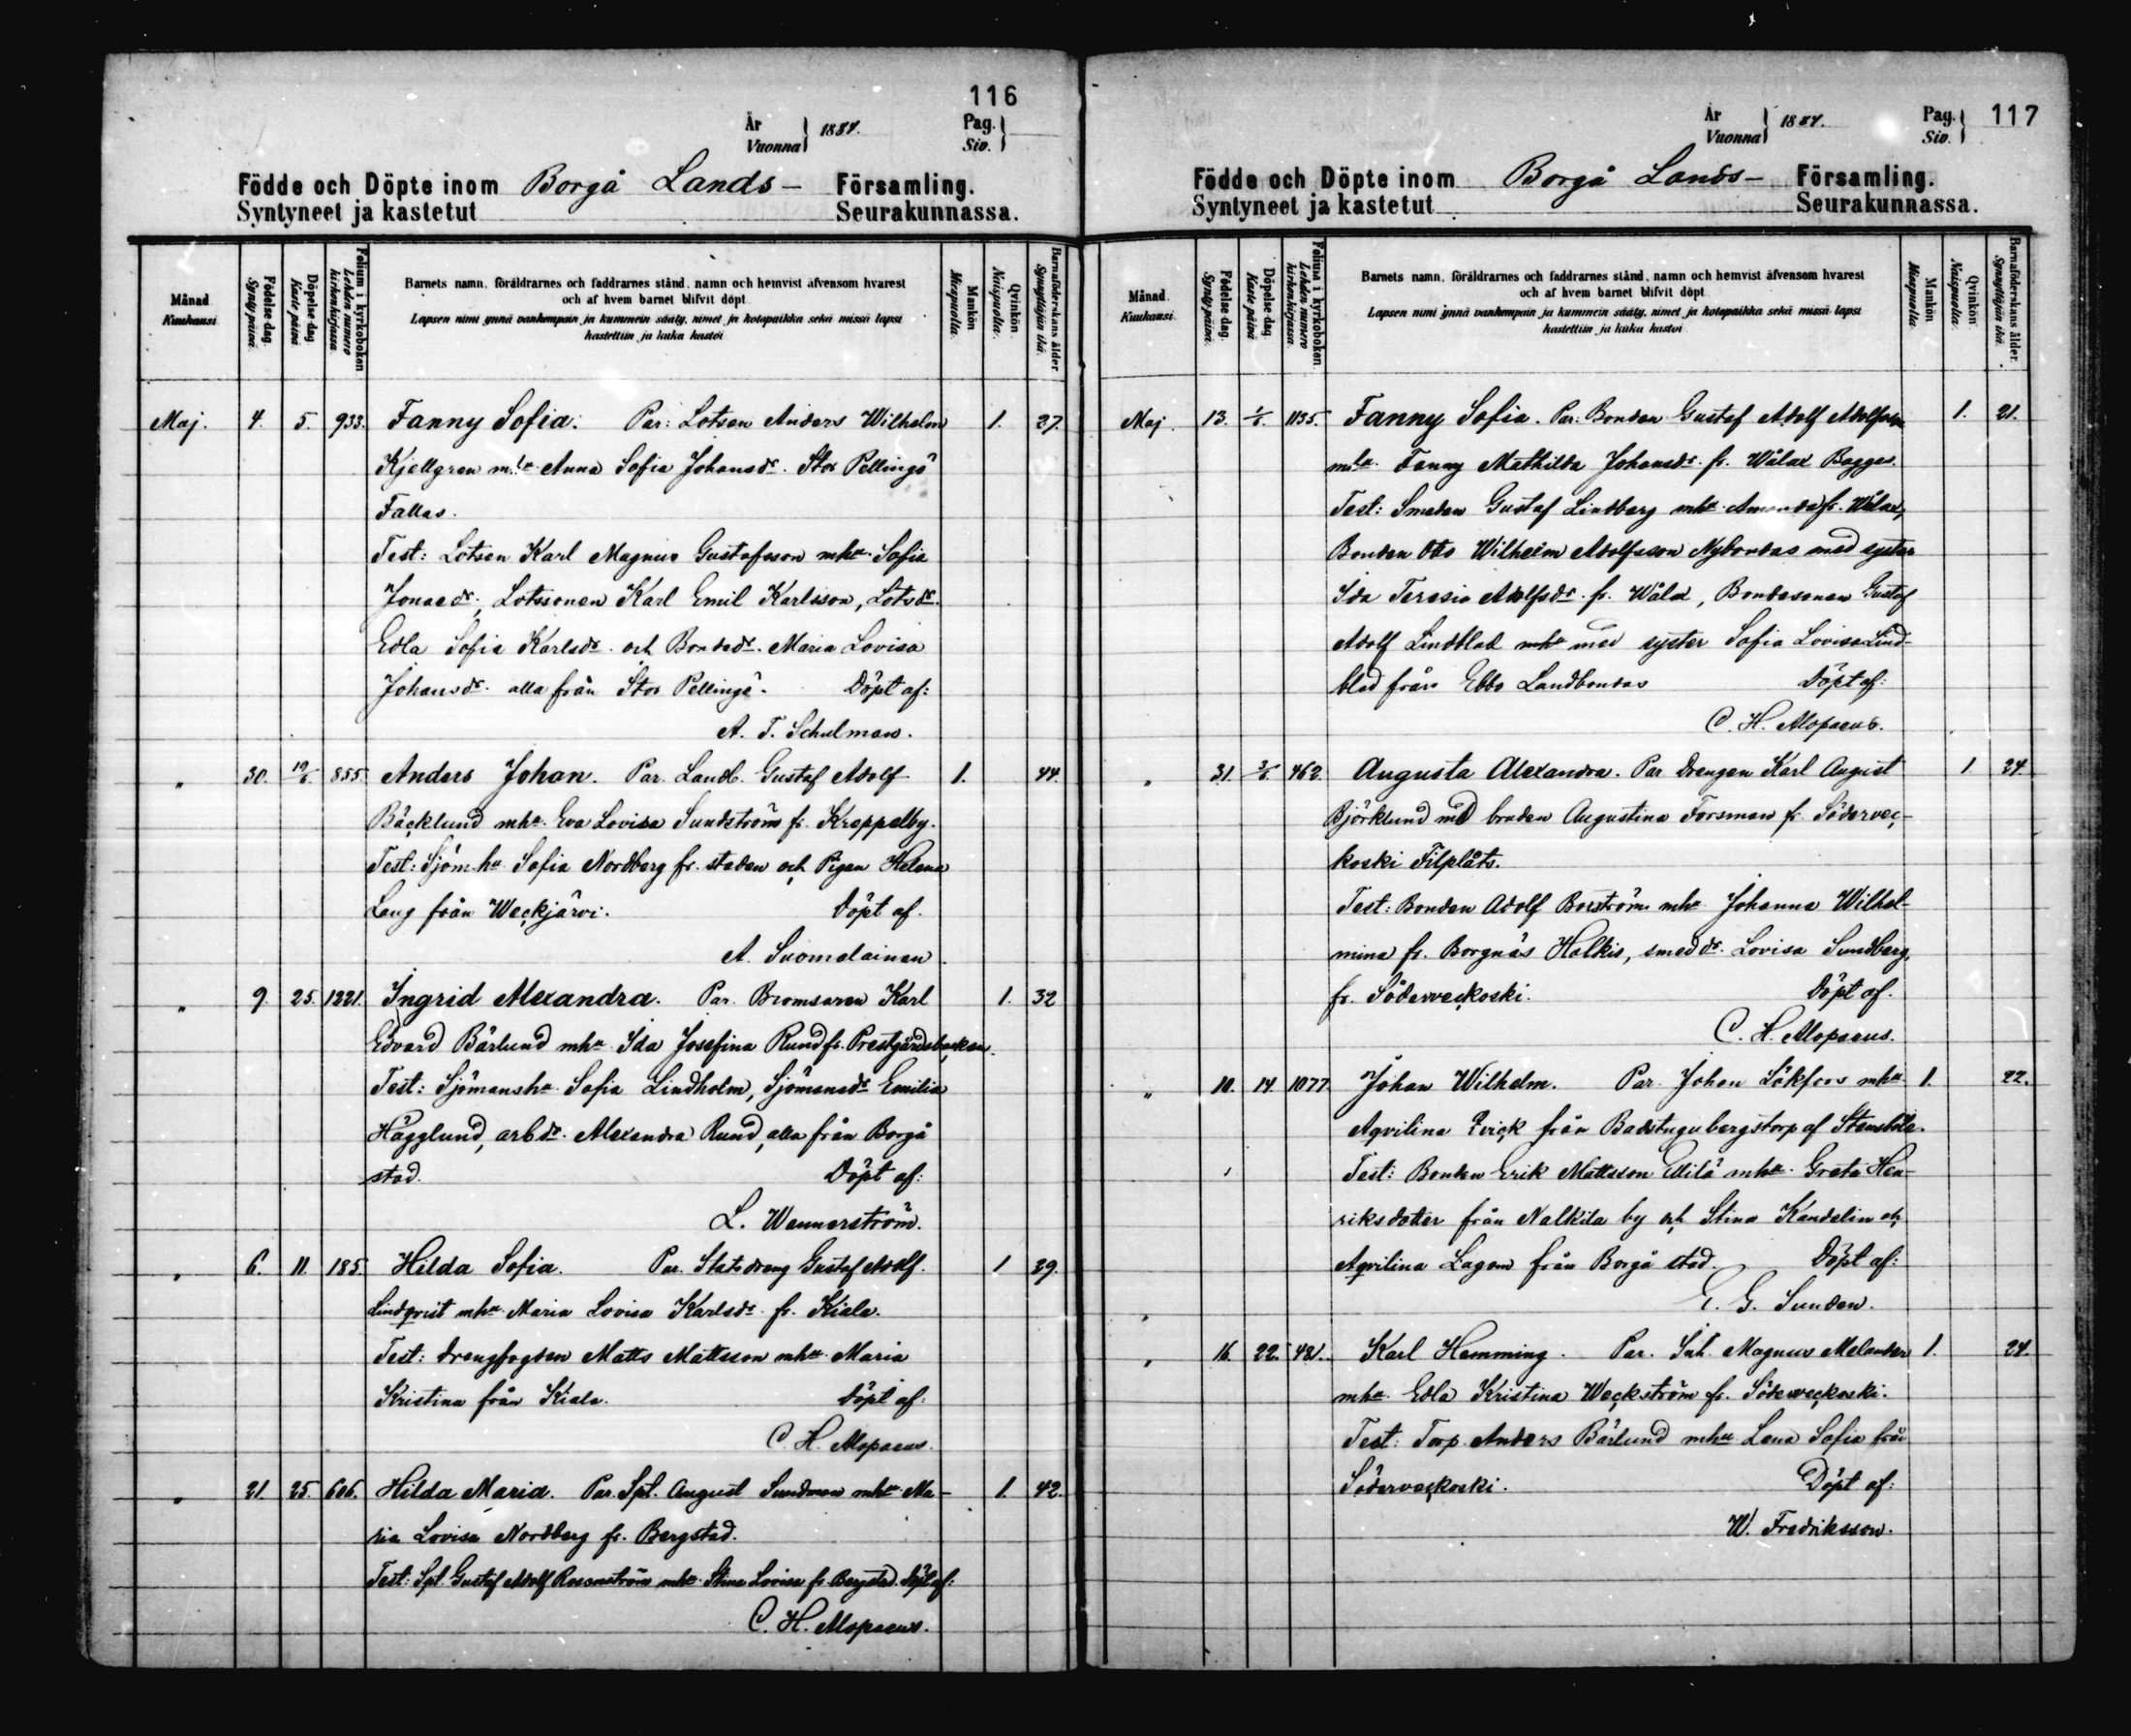 116
År
Vuonna
1884.
Pag.
Siv.
Födde och Döpte inom Borgå Lands- Församling.
Syntyneet ja kastetut Seurakunnassa.
Månad
Kuukausi
Födelse dag.
Synty päivä.
Döpelse dag
Kaste päivä
Folium i kyrkoboken
Lehden numero kirkonkirjassa
Barnets namn, föräldrarnes och faddrarnes stånd, namn och hemvist äfvensom hvarest
och af hvem barnet blifvit döpt.
Lapsen nimi ynnä vanhempain ja kummein sääty, nimet ja kotopaikka sekä missä lapsi
kastettiin ja kuka kastoi
Mankön
Miespuolta.
Qvinkön.
Naispuolta.
Barnaföderskans ålder
Synnyttäjän ikä.
Maj. 4. 5. 933. Fanny Sofia. Par: Lotsen Anders Wilhelm 1. 27.
Kjellgren m.ha Anna Sofia Johansdr. Stor Pellinge
Fallas.
Test: Lotsen Karl Magnus Gustafsson mha Sofia
Jonaedr., Lotssonen Karl Emil Karlsson, Lotsdr.
Edla Sofia Karlsdr. och Bondedr. Maria Lovisa
Johansdr. alla från Stor Pellinge. Döpt af:
A. T. Schulman.
" 30. 19/6. 855. Anders Johan. Par. Landb. Gustaf Adolf 1. 44.
Bäcklund mha. Eva Lovisa Sundström fr. Kroppelby.
Test: Sjöm.ha Sofia Nordberg fr. staden och Pigan Helena
Lang från Weckjärvi. Döpt af.
A. Suomalainen
" 9. 25. 1221. Ingrid Alexandra. Par. Bromsaren Karl 1. 32
Edvard Bärlund mha Ida Josefina Rund fr. Prestgårdsbacken.
Test: Sjömansha Sofia Lindholm, Sjömansdr Emilia
Hägglund, arb.dr. Alexandra Rund, alla från Borgå
stad. Döpt af:
L. Wennerström.
" 6. 11. 185. Hilda Sofia. Par. Statdreng Gustaf Adolf 1 29.
Lindqvist mha Maria Lovisa Karlsdr. fr. Kiala.
Test: Drengfogden Matts Mattsson mha Maria
Kristina från Kiala. Döpt af:
C. H. Alopaeus.
" 21. 25. 606. Hilda Maria. Par. Spt. August Sundman mha Ma- 1. 42.
ria Lovisa Nordberg fr. Bergstad.
Test: Spt. Gustaf Adolf Rosenström mha Stina Lovisa fr. Bergstad. Döpt af:
C. H. Alopaeus.
År
Vuonna
1884.
Pag.
Siv.
117
Födde och Döpte inom Borgå Lands- Församling.
Syntyneet ja kastetut Seurakunnassa.
Månad.
Kuukausi
Födelse dag.
Synty päivä.
Döpelse dag.
Kaste päivä
Folium i kyrkoboken.
Lehden numero kirkonkirjassa.
Barnets namn, föräldrarnes och faddrarnes stånd, namn och hemvist äfvensom hvarest
och af hvem barnet blifvit döpt.
Lapsen nimi ynnä vanhempain ja kummein sääty, nimet ja kotopaikka sekä missä lapsi
kastettiin ja kuka kastoi
Mankön
Miespuolta.
Qvinkön
Naispuolta.
Barnaföderskans ålder.
Synnyttäjän ikä.
Maj. 13. 1/6. 1135. Fanny Sofia. Par: Bonden Gustaf Adolf Adolfsson 1. 21.
mha. Fanny Mathilda Johansdr. fr. Wålax Bagges.
Test: Smeden Gustaf Lindberg mha Amanda fr. Wålax,
Bonden Otto Wilhelm Adolfsson Nybondas med syster
Ida Teresia Adolfsdr. fr. Wålax, Bondesonen Gustaf
Adolf Lindblad mha med syster Sofia Lovisa Lind-
blad från Ebbo Landbondas Döpt af:
C. H. Alopaeus.
" 31. 2/6. 462. Augusta Alexandra. Par Drengen Karl August 1 24.
Björklund med bruden Augustina Forsman fr. Södervec-
koski Filplåts.
Test: Bonden Adolf Borström mha Johanna Wilhel-
mina fr. Borgnäs Halkis, smeddr. Lovisa Sundberg,
fr. Söderveckoski. Döpt af.
C. H. Alopaeus.
" 10. 14. 1077. Johan Wilhelm. Par. Johan Lökfors mha 1. 22.
Aqvilina Qvick från Badstugubergstorp af Stensböle.
Test: Bonden Erik Mattsson mha. Greta Hen-
riksdotter från Nalkila by och Stina Kandelin och
Aqvilina Lagom från Borgå stad. Döpt af:
E. G. Sunden.
" 16. 22. 421. Karl Hemming. Par. Inh. Magnus Melander 1. 24.
mha. Edla Kristina Weckström fr. Söderveckoski.
Test: Torp. Anders Bärlund mha Lena Sofia från
Söderveckoski. Döpt af:
W. Fredriksson.